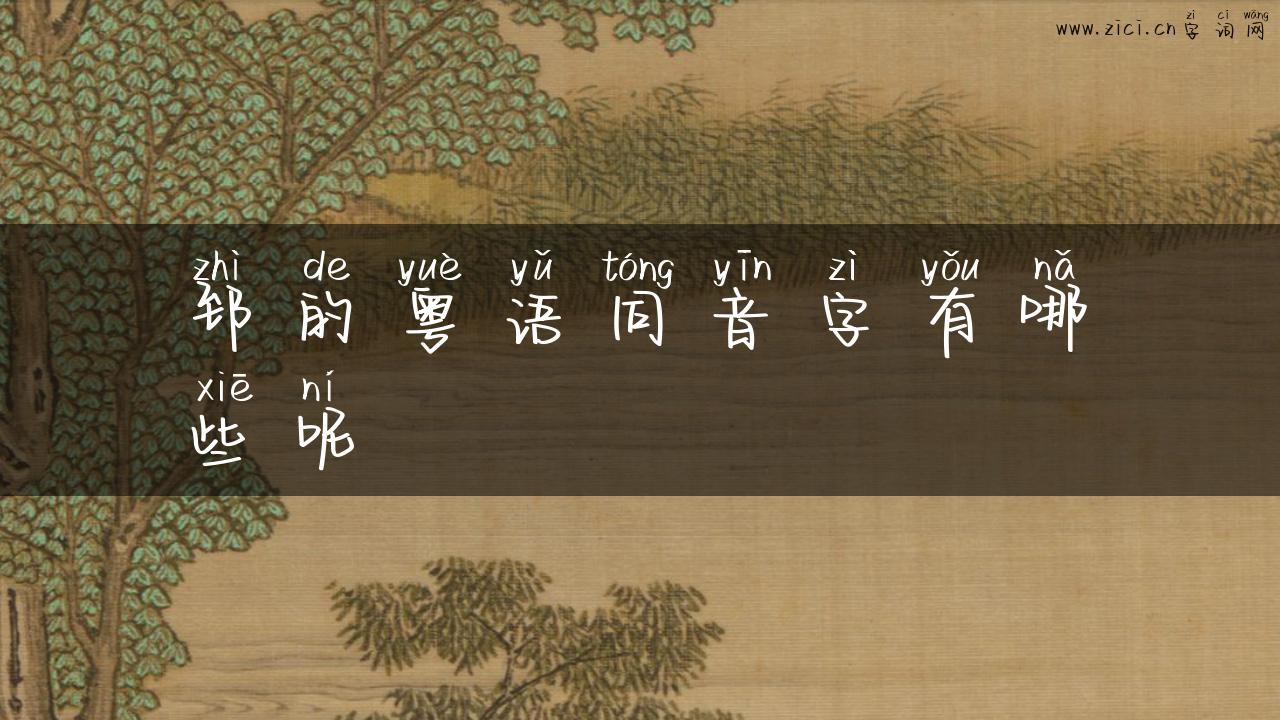 zì cí wǎng
www.zici.cn 字词网
zhì de yuè yǔ tóng yīn zì yǒu nǎ
郅的粤语同音字有哪
xiē ní
些呢